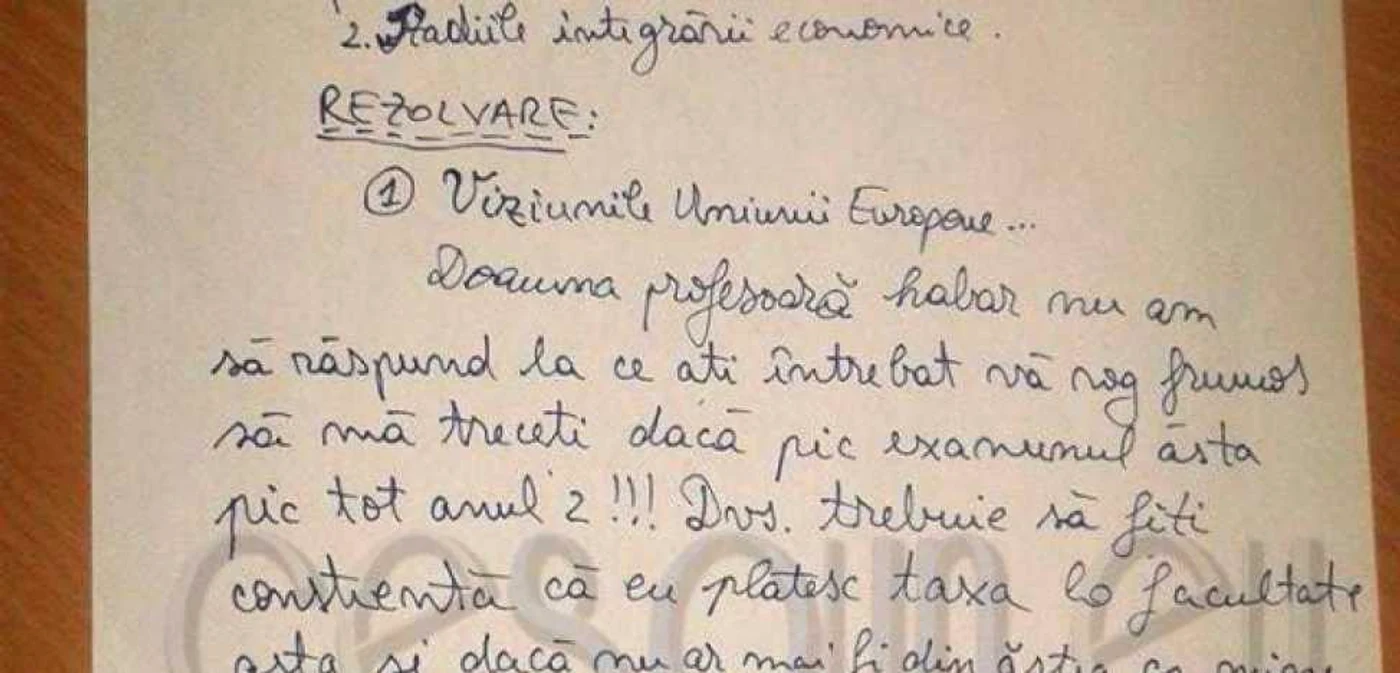 2. Stadiile integrării economice.
REZOLVARE:
① Viziunile Uniunii Europene...
Doamna profesoară habar nu am
să răspund la ce ati întrebat vă rog frumos
să mă treceti dacă pic examenul ăsta
pic tot anul 2!!! Dvs. trebuie să fiti
constientă că eu platesc taxa la facultate
asta si dacă nu ar mai fi din ăstia ca mine